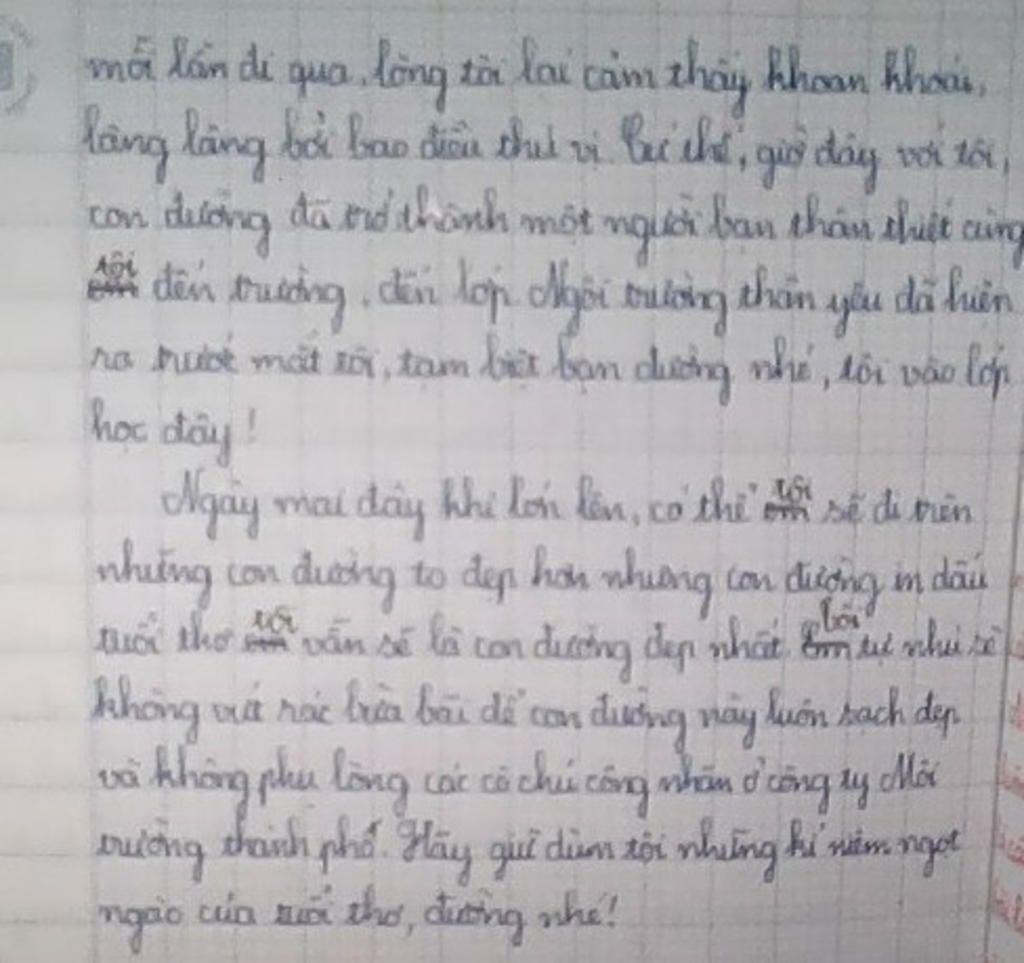 mỗi lần đi qua, lòng tôi lại cảm thấy khoan khoái,
lâng lâng bởi bao điều thú vị. Cứ thế, giờ đây với tôi,
con đường đã trở thành một người bạn thân thiết cùng
tôi đến trường, đến lớp. Ngôi trường thân yêu đã hiện
ra trước mắt tôi, tạm biệt bạn đường nhé, tôi vào lớp
học đây!
Ngày mai đây khi lớn lên, có thể tôi sẽ đi trên
những con đường to đẹp hơn nhưng con đường in dấu
tuổi thơ tôi vẫn sẽ là con đường đẹp nhất. Tôi tự nhủ sẽ
không vứt rác bừa bãi để con đường này luôn sạch đẹp
và không phụ lòng các cô chú công nhân ở công ty Môi
trường thành phố. Hãy giữ dùm tôi những kỉ niệm ngọt
ngào của tuổi thơ, đường nhé!